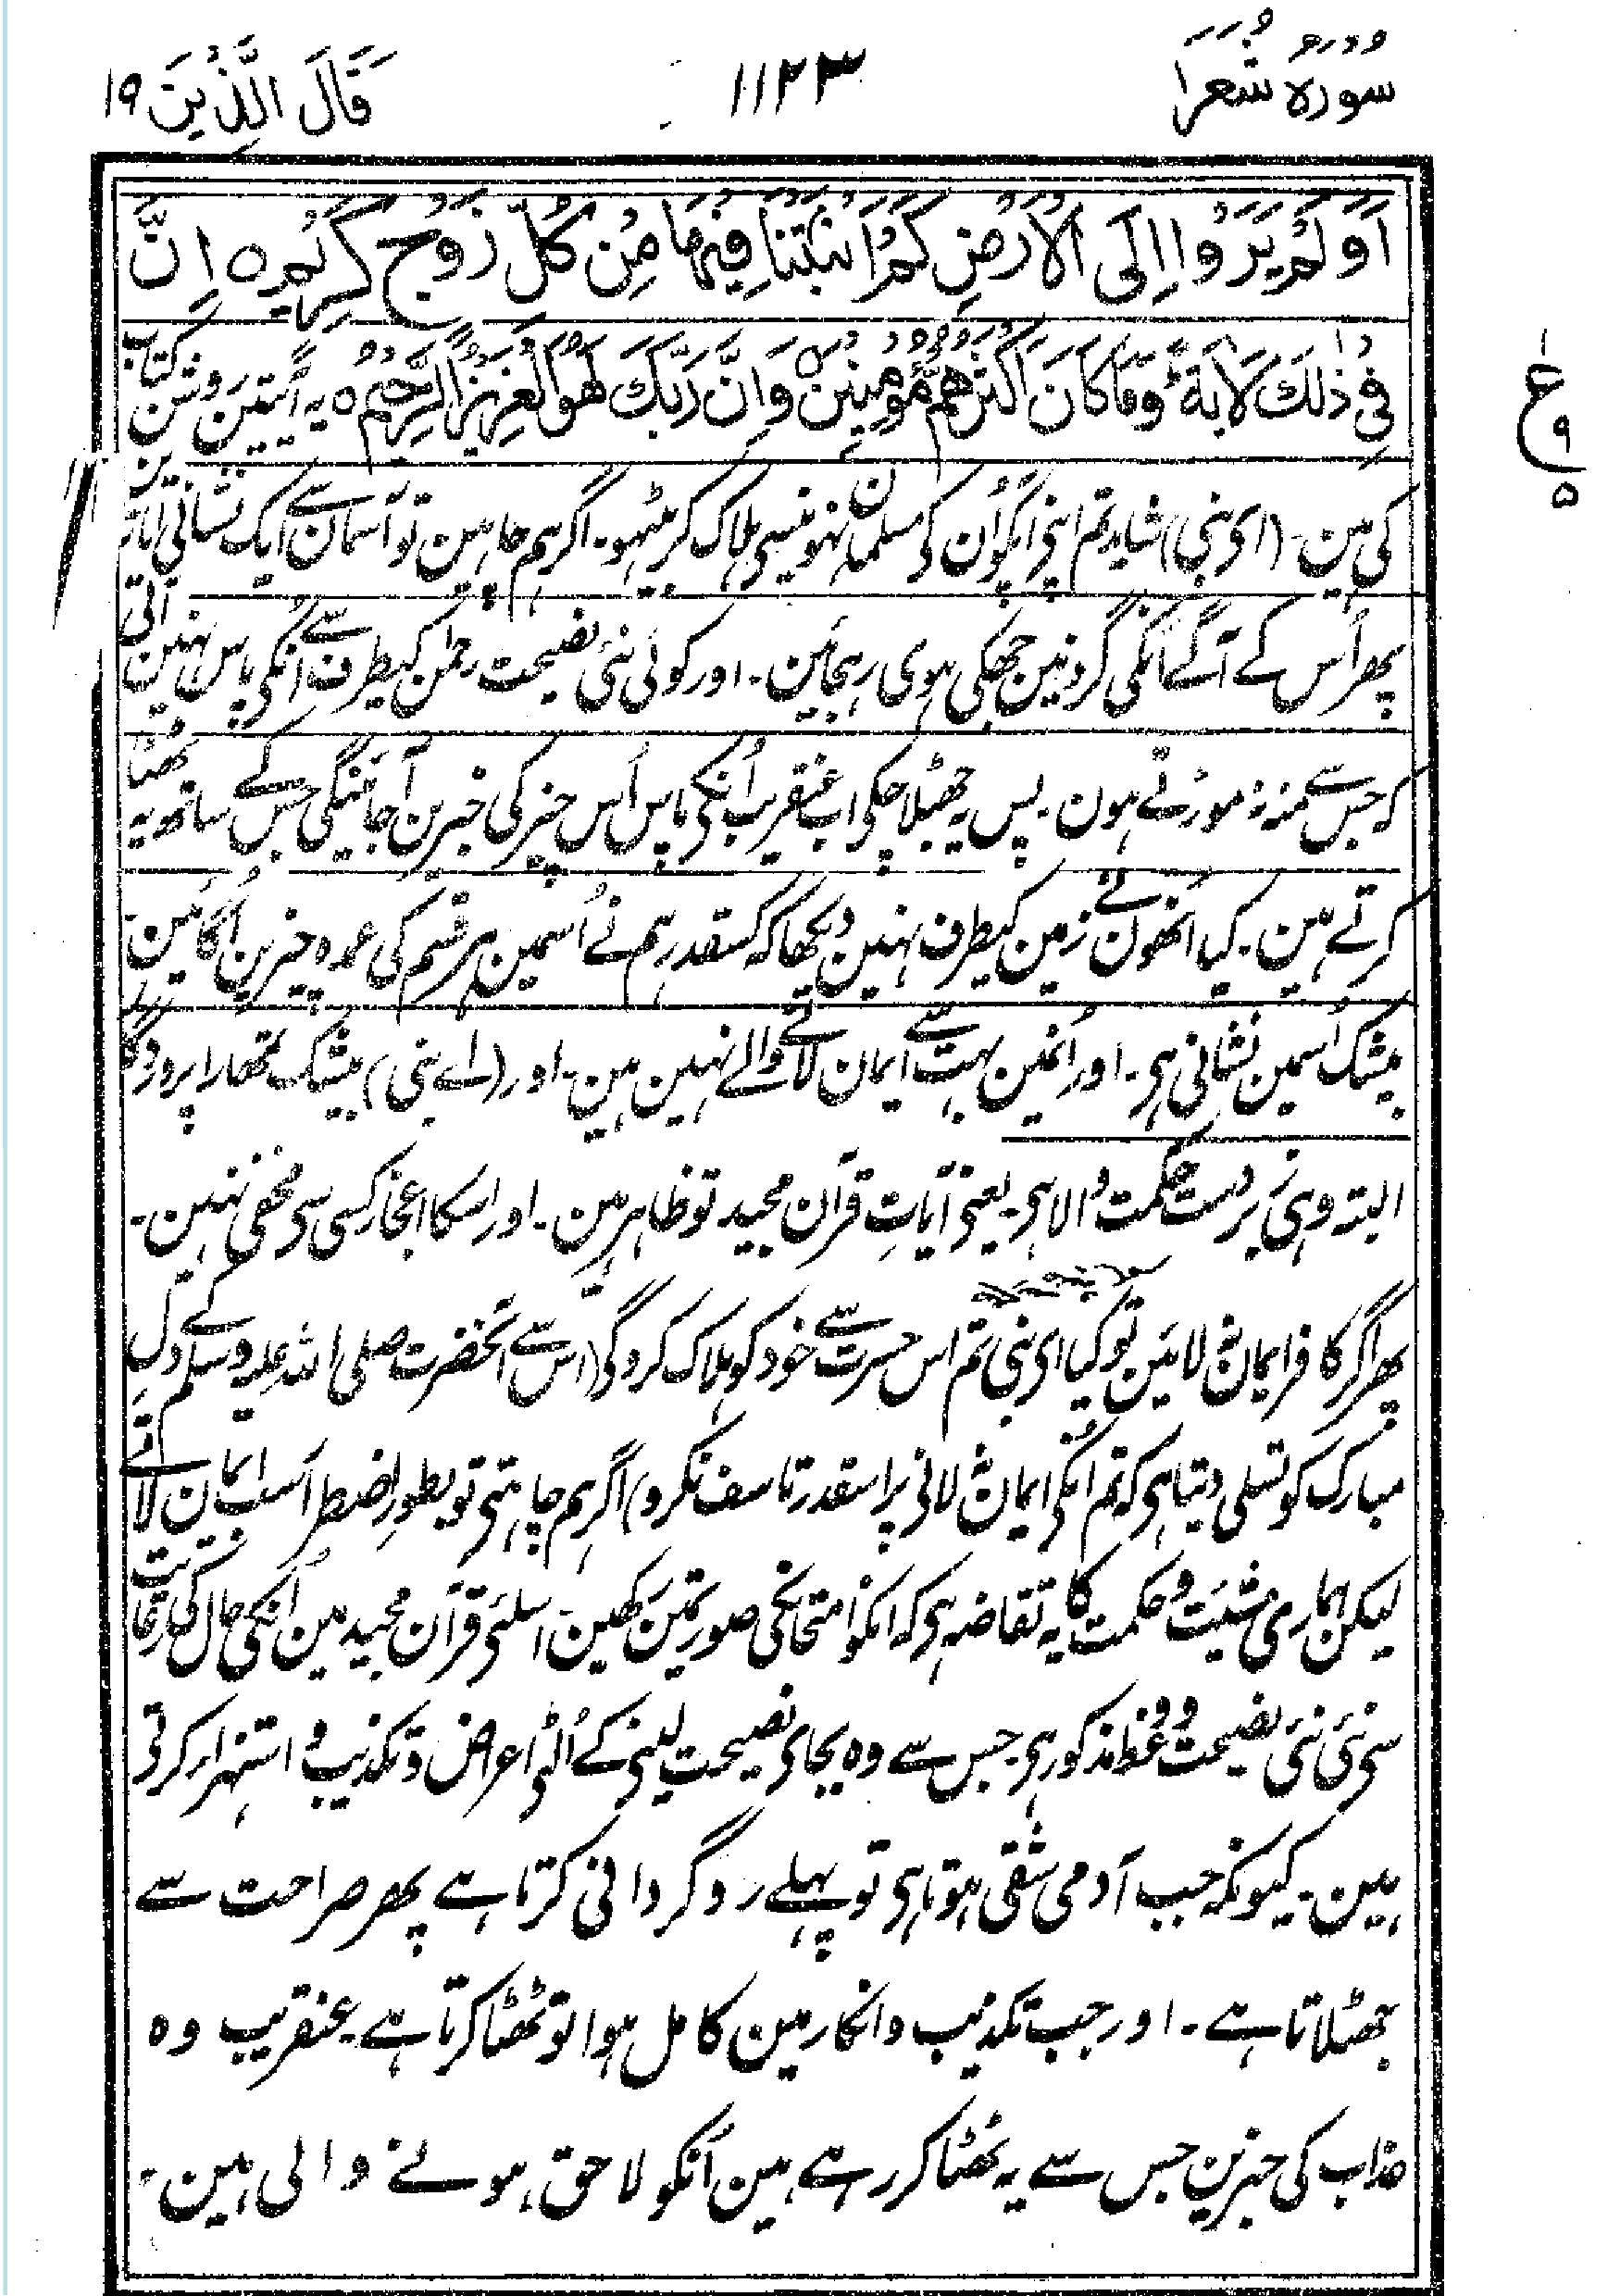 سورۃ شعرا
۱۱۲۳
وَقَالَ الَّذِیْنَ ۱۹
اَوَلَمْ یَرَوْا اِلَی الْاَرْضِ کَمْ اَنْبَتْنَا فِیْهَا مِنْ کُلِّ زَوْجٍ کَرِیْمٍ ہ اِنَّ
فِیْ ذٰلِكَ لَاٰیَةً ؕ وَمَا کَانَ اَکْثَرُهُمْ مُّؤْمِنِیْنَ ہ وَاِنَّ رَبَّكَ لَهُوَ الْعَزِیْزُ الرَّحِیْمُ ہ یہ آیتین روشن کتاب
ع ۹ ۵
کی ہین۔ (ای نبی) شاید تم اپنی آپکو اُن کی مسلمان نہونیسی ہلاک کر بیٹھو۔ اگر ہم چاہین تو آسمان سے ایک نشانی اتار دین
پھر اُس کے آگے انکی گردنین جھکی ہوی رہجائین۔ اور کوئی نئی نصیحت رحمٰن کیطرف سے اُنکی پاس نہین آتی
کہ جس سے منہ نہ موڑتے ہون۔ پس یہ جھٹلا چکی اب عنقریب اُنکی پاس اُس چیز کی خبرین آجائینگی جس کے ساتھ یہ ٹھٹا
کرتے ہین۔ کیا اُنھون نے زمین کیطرف نہین دیکھا کہ کسقدر ہم نے اُسمین ہر قسم کی عمدہ چیزین اُگائین۔
بیشک اُسمین نشانی ہی۔ اور اُنمین بہت سے ایمان لانے والے نہین ہین۔ اور (اے نبی) بیشک تمھارا پروردگار
البتہ وہی زبردست حکمت والا ہی۔ یعنی آیاتِ قرآن مجید تو ظاہر ہین۔ اور اسکا اعجاز کسی سی مخفی نہین۔
پھر اگر کافر ایمان نہ لائین تو کیا ای نبی تم اس حسرت سے خود کو ہلاک کروگی (اس سے آنحضرت صلی اللہ علیہ وسلم کے دلِ
مبارک کو تسلی دیتا ہی کہ تم انکی ایمان نہ لانی پر اسقدر تاسف نکرو) اگر ہم چاہتی تو بطورِ اضطرار سب ایمان لاتے
لیکن ہماری مشیت و حکمت کا یہ تقاضہ ہی کہ انکو امتحانکی صورتمین رکھین۔ اسلئی قرآن مجید مین اُنکی حال کی رعایت
سی نئی نئی نصیحت و وعظ مذکور ہی۔ جس سے وہ بجای نصیحت لینی کے اُلٹی اعراض و تکذیب و استہزاء کرتی
ہین۔ کیونکہ جب آدمی شقی ہوتا ہی تو پہلے روگردانی کرتا ہے پھر صراحت سے
جھٹلاتا ہے۔ اور جب تکذیب و انکار مین کامل ہوا تو ٹھٹا کرتا ہے۔ عنقریب وہ
عذاب کی خبرین جس سے یہ ٹھٹا کر رہے ہین اُنکو لاحق ہونے والی ہین۔